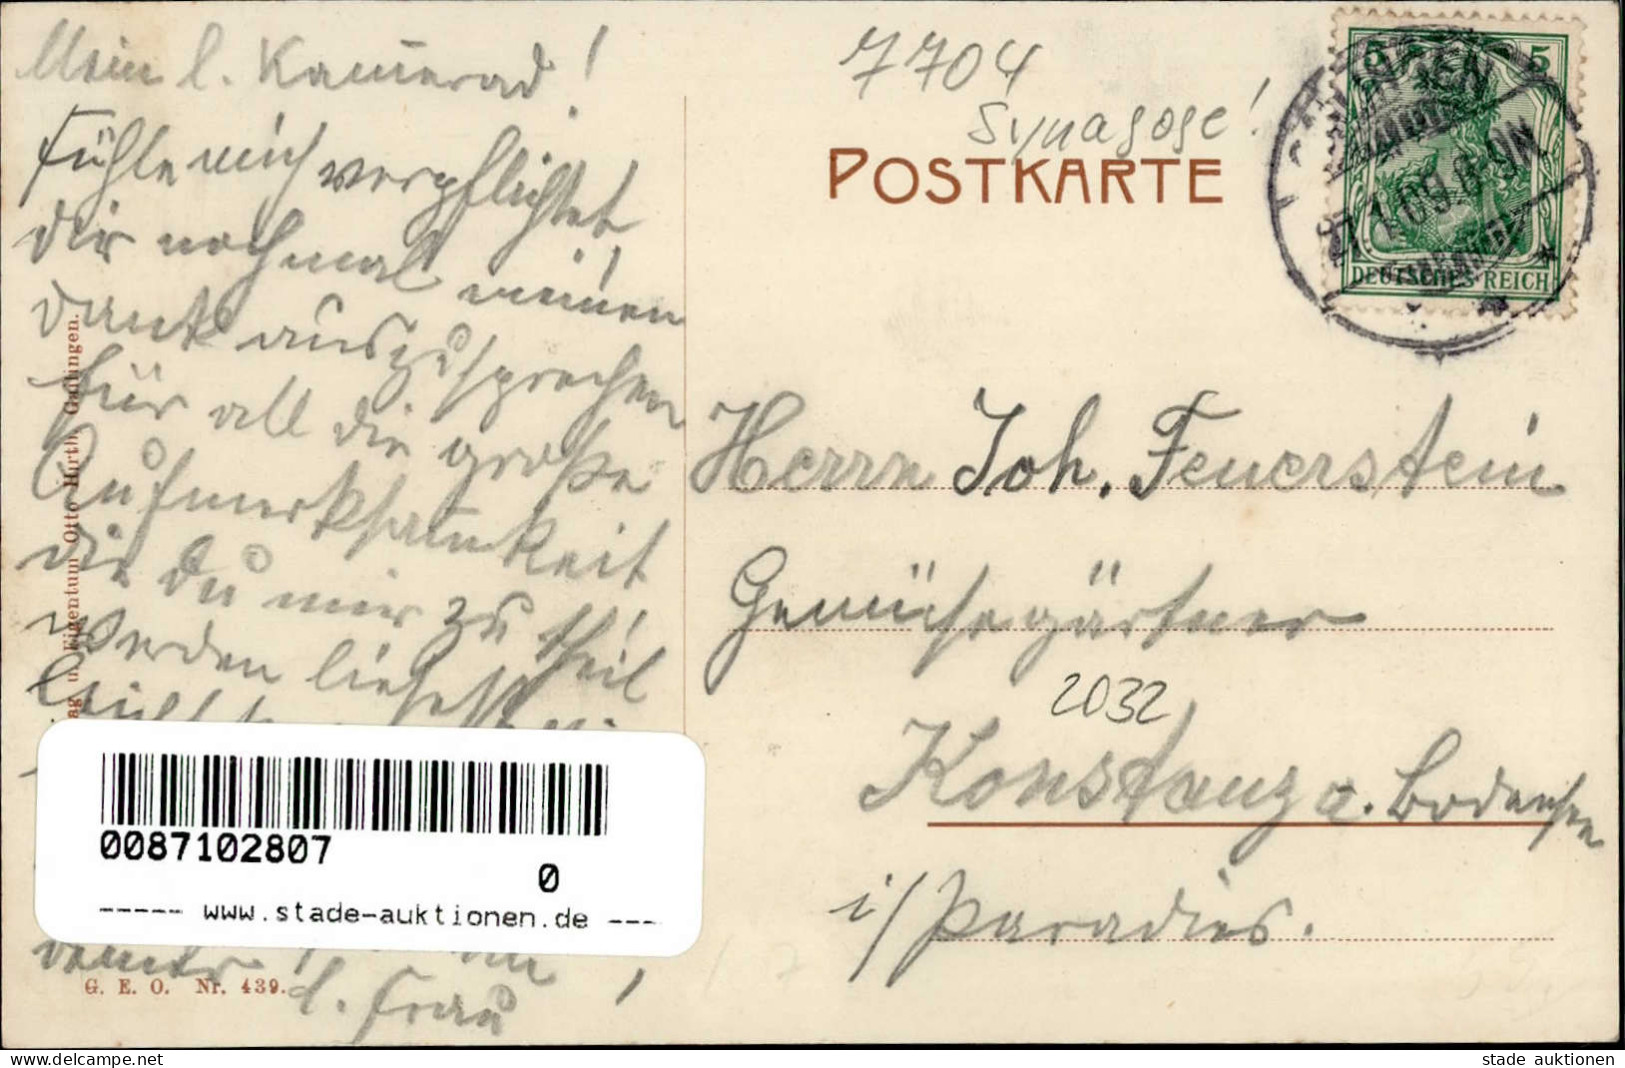 Mein l. Kamerad!
Fühle mich verpflichtet
dir nochmal meinen
Dank auszusprechen
für all die große
Aufmerksamkeit
die Du mir zu theil
werden ließest
l. Frau
7704
Synagoge!
POSTKARTE
5 5
7.1.09.
DEUTSCHES REICH
Herrn Joh. Feuerstein
Gemüsegärtner
2032
Konstanz a. Bodensee
i/Paradies.
u. Eigentum Otto Hirth,
0087102807
0
----- www.stade-auktionen.de ----
G. E. O. Nr. 439.
www.delcampe.net
stade auktionen